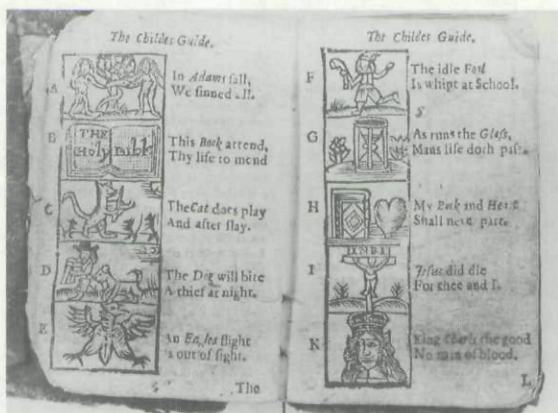 The Childes Guide.
A
In Adams fall,
We sinned all.
B
THE
Holy Bible
This Book attend,
Thy life to mend
C
The Cat does play
And after slay.
D
The Dog will bite
A thief at night.
E
An Eagles flight
Is out of sight.
The
The Childes Guide.
F
The idle Fool
Is whipt at School.
G
As runs the Glass,
Mans life doth pass.
H
My Book and Heart
Shall never part.
I
INRI
Jesus did die
For thee and I.
K
King Charls the good
No man of blood.
L